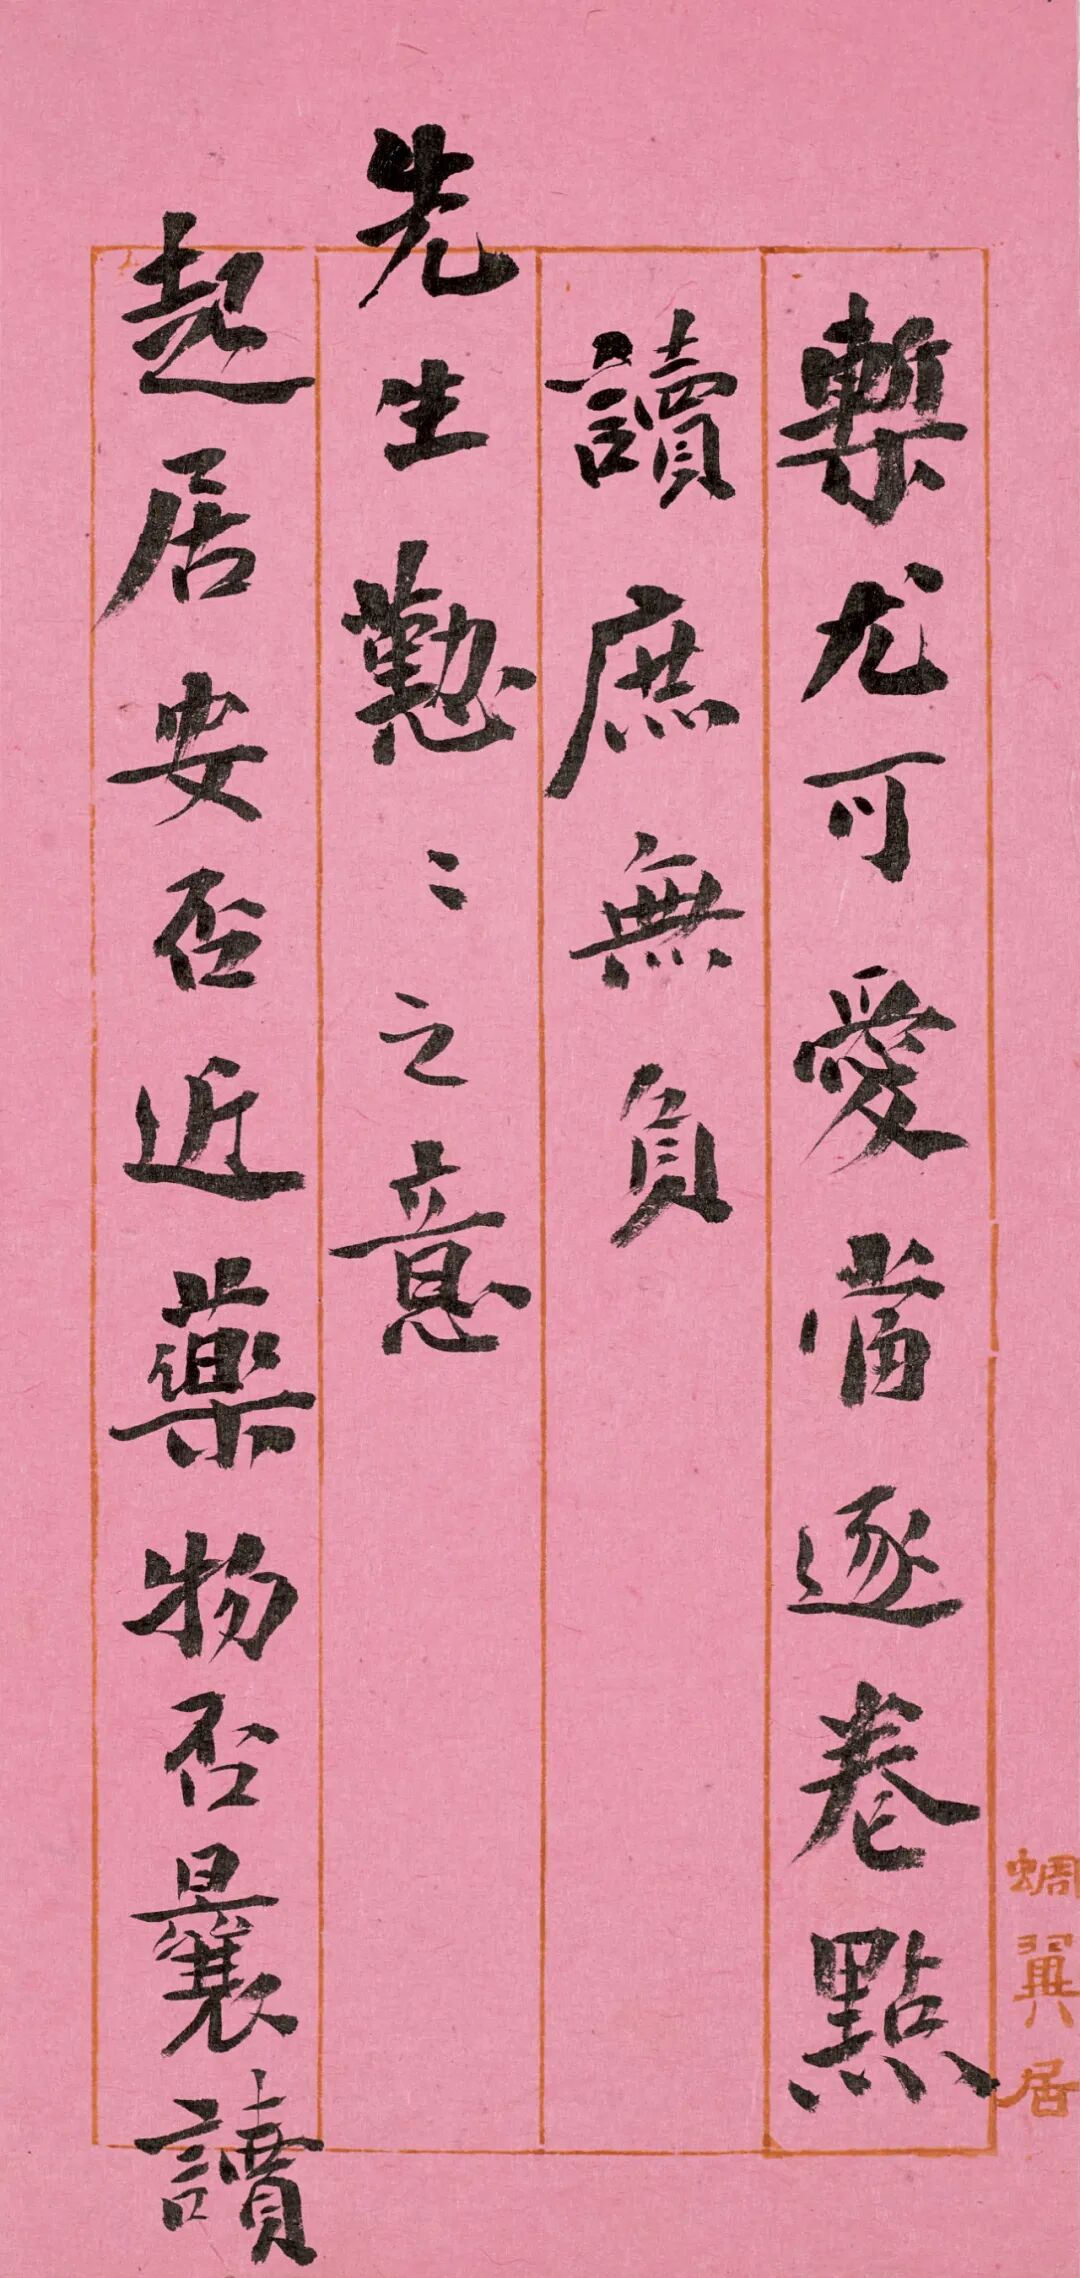 槧尤可愛當逐卷點
讀庶無負
先生懃〻之意
起居安否近藥物否曩讀
蜩翼居